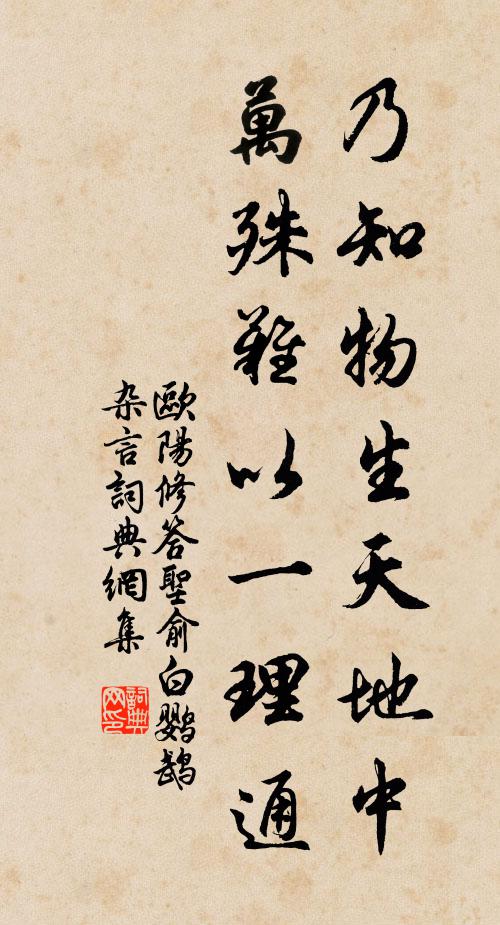 乃知物生天地中
萬殊難以一理通
歐陽修答聖俞白鸚鵡
杂言詞典網集
詞典网印